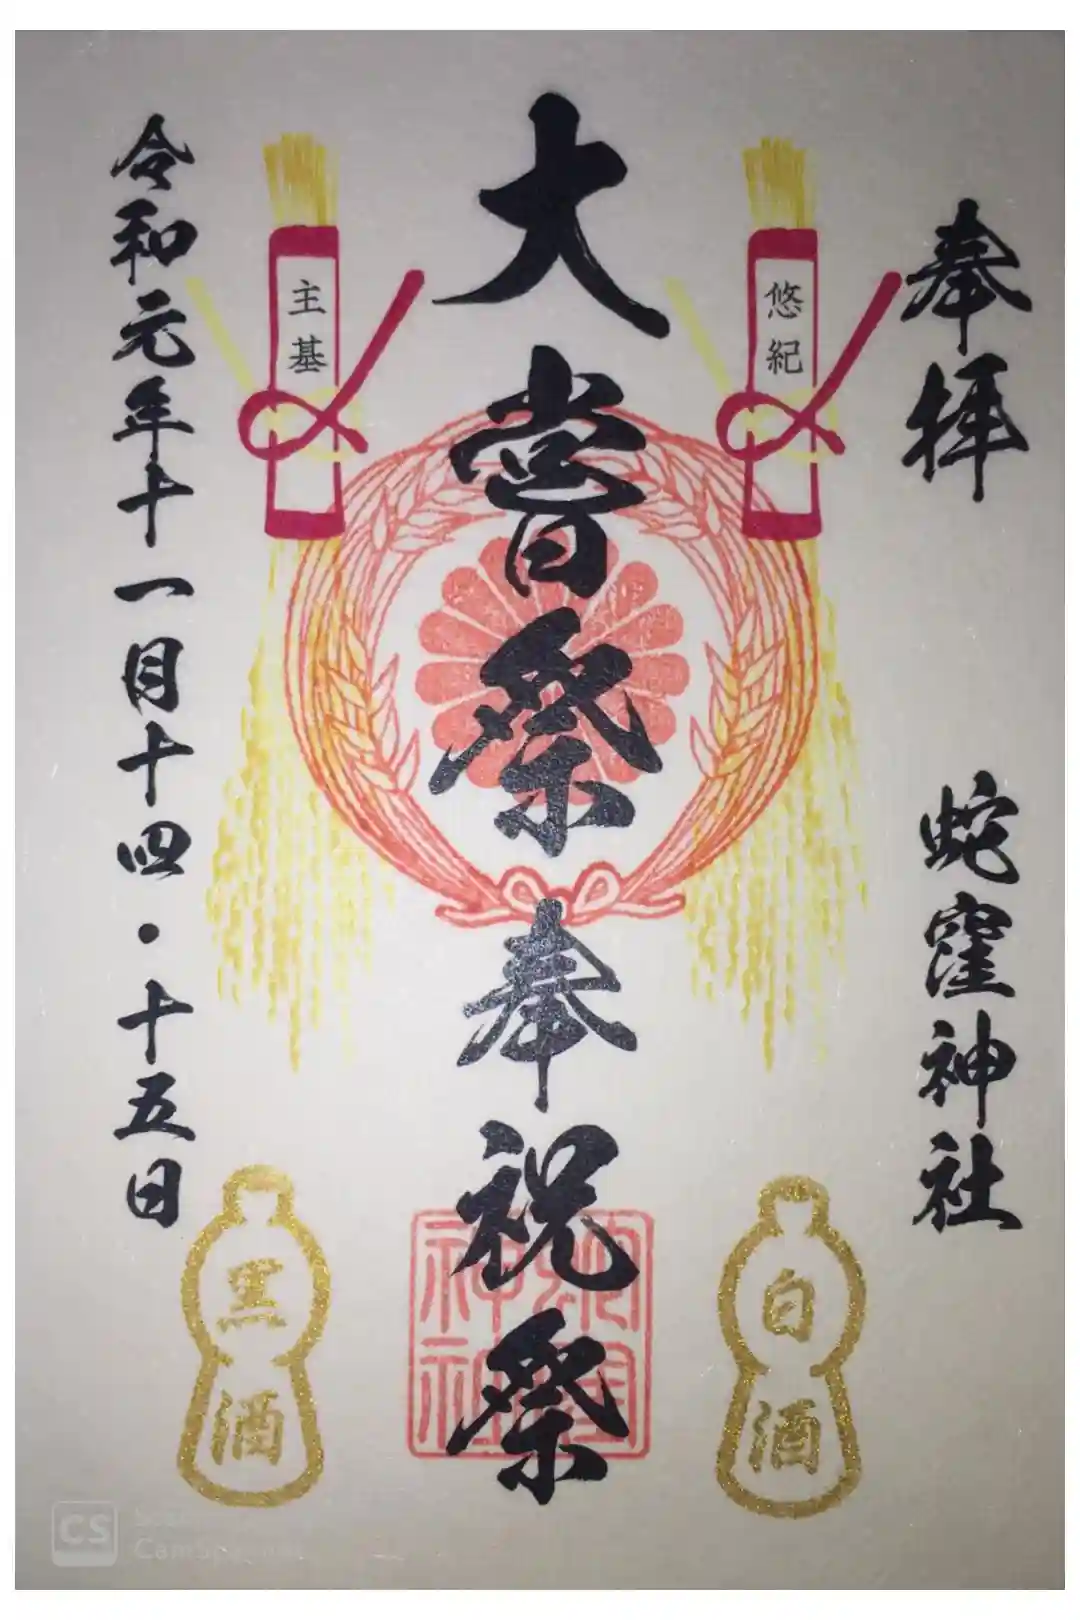 奉拝
蛇窪神社
悠紀
白酒
大嘗祭奉祝祭
主基
黒酒
令和元年十一月十四・十五日
CS